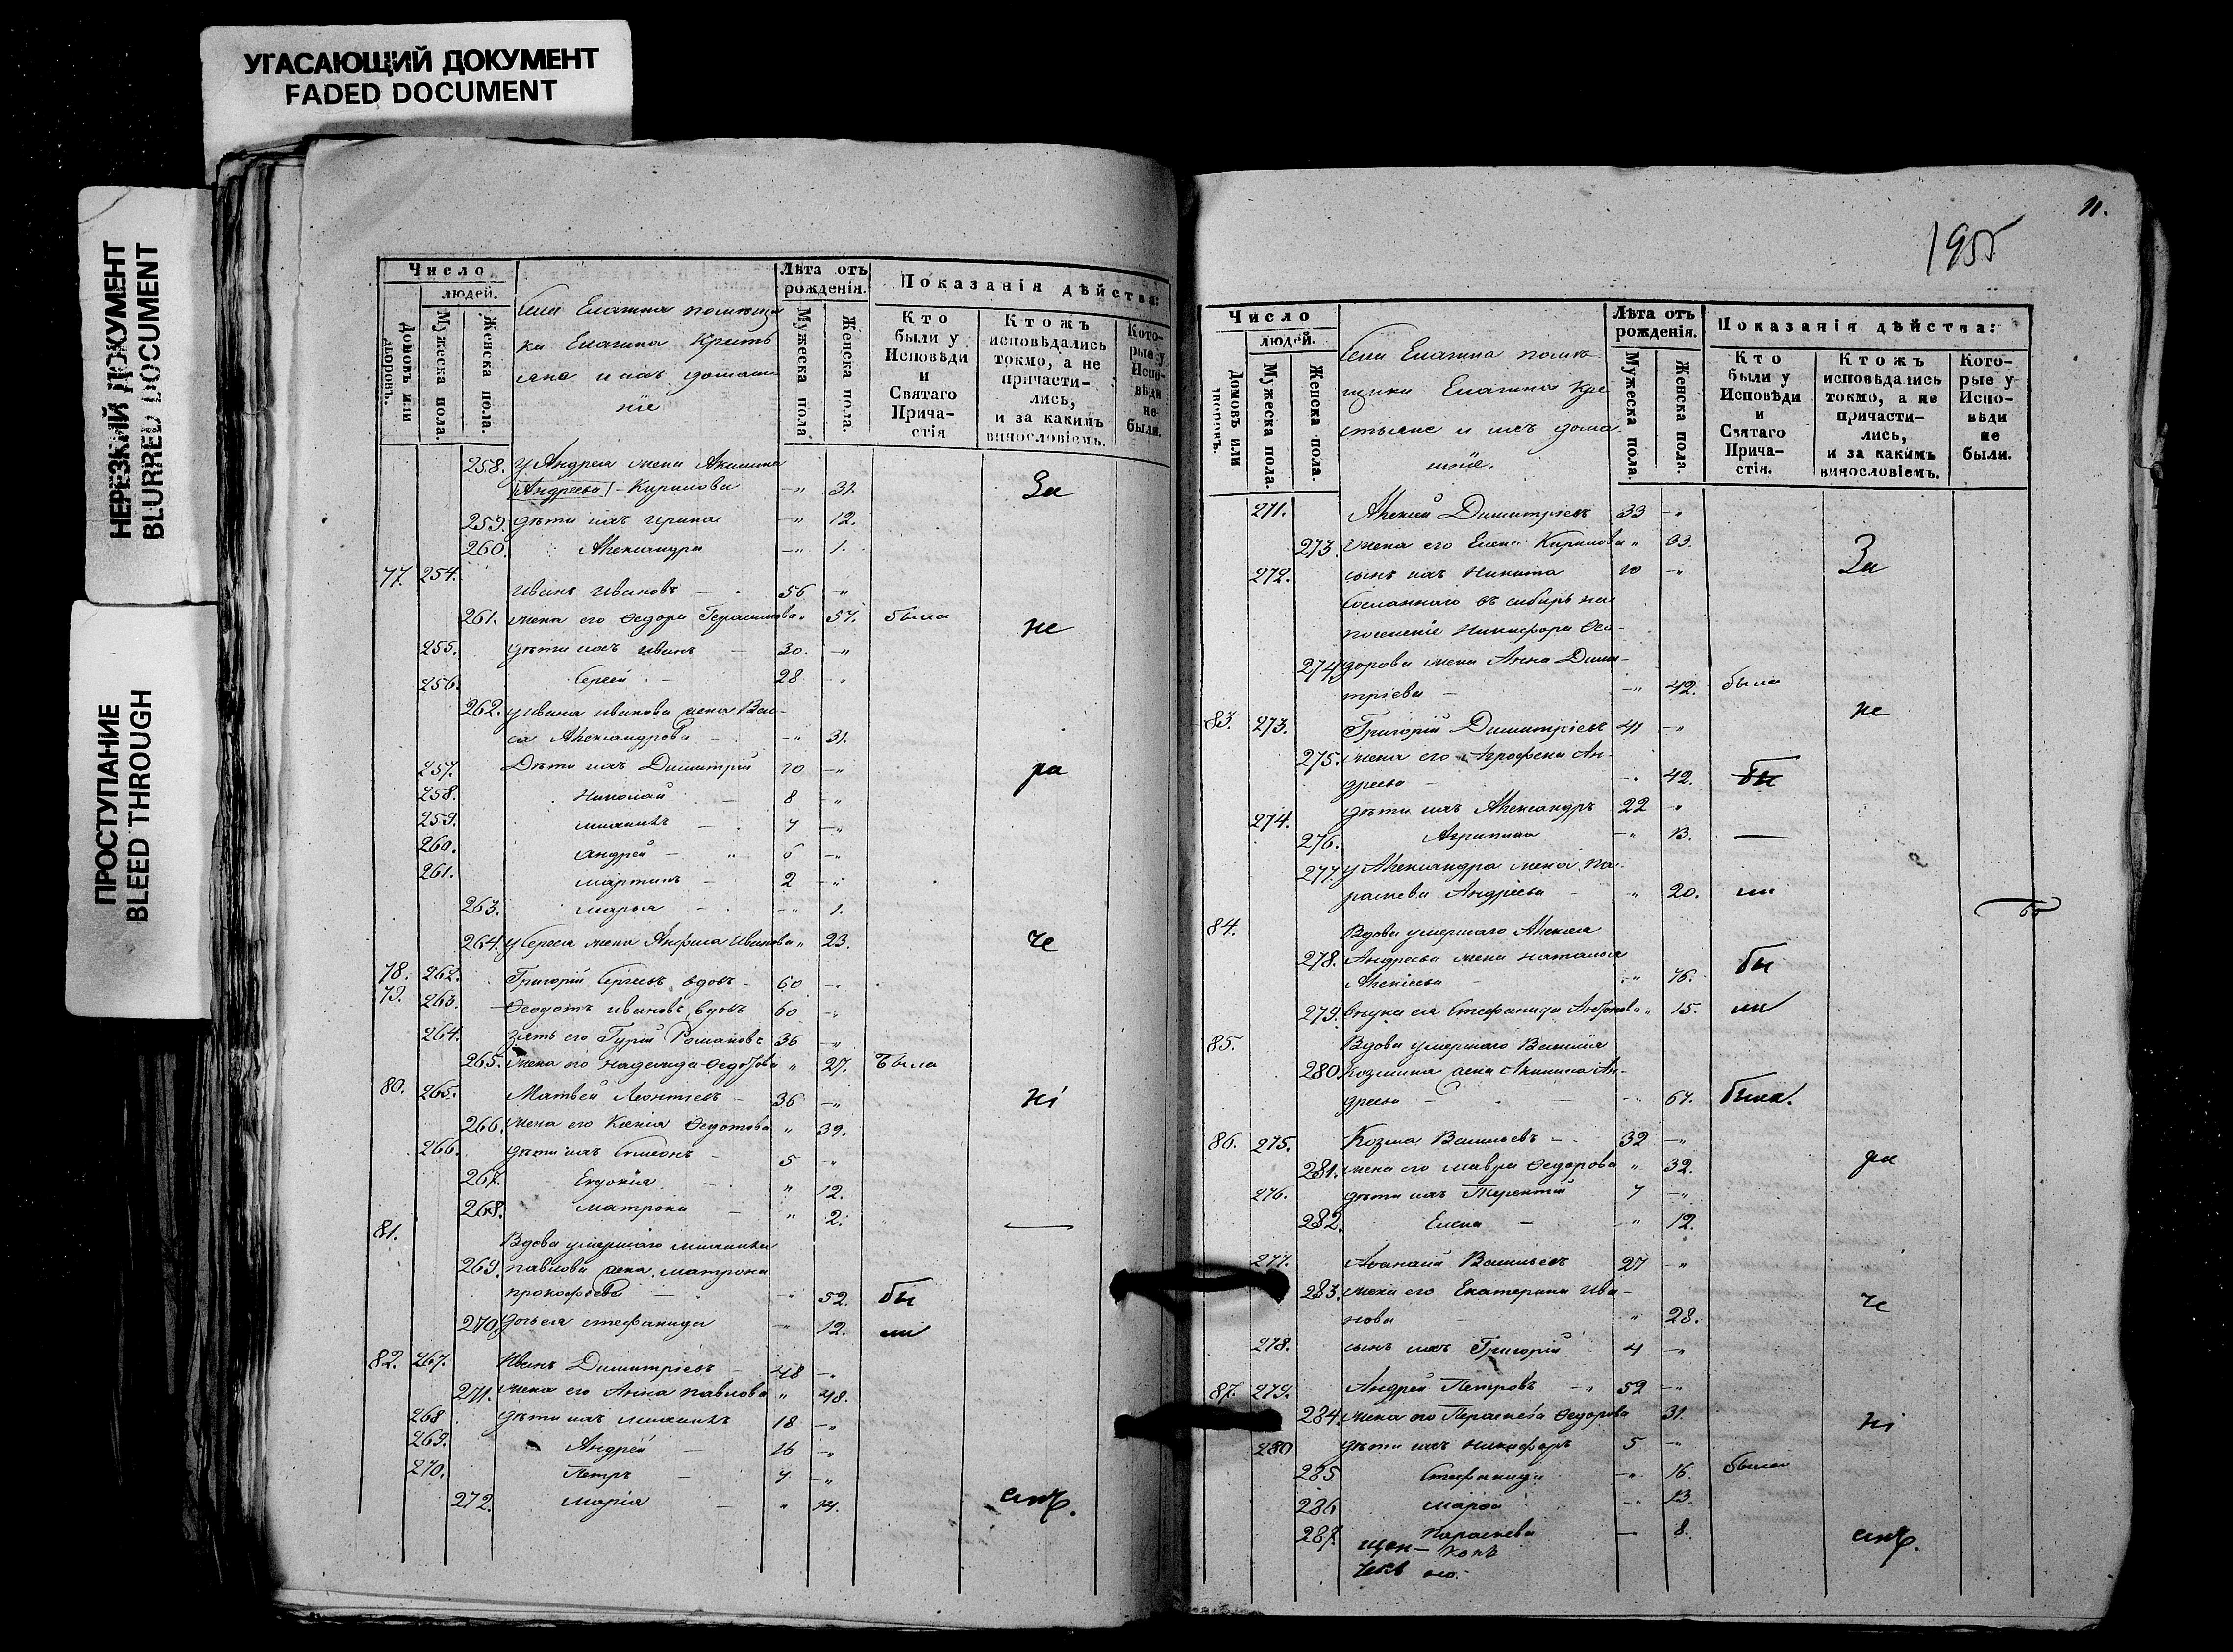 УГАСАЮЩИЙ ДОКУМЕНТ
FADED DOCUMENT
НЕРЕЗКИЙ ДОКУМЕНТ
BLURRED DOCUMENT
ПРОСТУПАНИЕ
BLEED THROUGH
Число
людей.
Домовъ или дворовъ.
Мужеска пола.
Женска пола.
Лѣта отъ рожденія.
Мужеска пола
Женска пола.
Показанія дѣйства:
Кто были у Исповѣди и Святаго Прича-стія
Ктожъ исповѣдались токмо, а не причасти-лись, и за какимъ винословіемъ.
Кото-рые у Испо-вѣди не были.
258. у Андрея жена Акилина
Андреева Кирилова —" 31. За
259. дѣти ихъ Ирина —" 12.
260. Александра —" 1.
77. 254. Иванъ Ивановъ 56 —"
261. жена его Ѳедора Герасимова " 57. была не
255. дѣти ихъ Иванъ 30. —"
256. Сергей 28 —"
262. у Ивана Иванова жена Ва-
са Александрова —" 31.
257. Дѣти ихъ Димитрій 10 —" ра
258. Николай 8 —"
259. Михаилъ 7 —"
260. Андрей —"
261. Мартинъ 2 —"
263. Марья —" 1.
264. у Сергея жена Анфиса Иванова " 23. че
78. 262. Григорій Сергеевъ вдовъ 60 —"
79. 263. Ѳеодотъ Ивановъ вдовъ 60 —"
264. зять его Гурій Романовъ 36 —"
265. жена его Надежда Ѳедотова " 27. Была
80. 265. Матвей Леонтіевъ 36 —" ні
266. жена его Ксенія Ѳедотова " 39.
266. дѣти ихъ Симеонъ 5 —"
267. Евдокія " 12.
268. Матрона " 2.
81. Вдова умершаго Михаила
269. Павлова жена Матрона
Прокофьева —" 52. бы
270. дочь ея Стефанида —" 12. ли
82. 267. Иванъ Димитріевъ 48 —"
271. жена его Анна Павлова " 48.
268. дѣти ихъ Михаилъ 18 —"
269. Андрей 16 —"
270. Петръ 7 —"
272. Марія "
11.
195
Число
людей.
Домовъ или дворовъ.
Мужеска пола.
Женска пола.
Лѣта отъ рожденія.
Мужеска пола.
Женска пола.
Показанія дѣйства:
Кто были у Исповѣди и Святаго Прича-стія.
Ктожъ исповѣдались токмо, а не причасти-лись, и за какимъ винословіемъ.
Кото-рые у Испо-вѣди не были.
271. Алексій Димитріевъ 33 —"
273. жена его Елена Кирилова " 33. За
272. сынъ ихъ Никита 10 —"
Сосланнаго въ Сибирь на
поселеніе Никифора Ѳео-
274. дорова жена Анна Дими-
тріева —" 42. была
83. 273. Григорій Димитріевъ 41 —" не
275. жена его Агрофена Ан-
дреева —" 42. бы
274. дѣти ихъ Александръ 22 —"
276. Агрипина —" 13. —
277. у Александра жена Па-
раскева Андреева " 20. ли
84. Вдова умершаго Алексея
278. Андреева жена Наталья
Алексіева —" 76. бы
279. внука ея Стефанида " 15. ли
85. Вдова умершаго Василія
280. Козмина жена Акилина Ан-
дреева —" 67. была.
86. 275. Козма Васильевъ 32 —"
281. жена его Мавра Ѳедорова " 32. ра
276. дѣти ихъ Терентій 7 —"
282. Елена —" 12.
277. Аѳанасій Васильевъ 27 —"
283. жена его Екатерина Ива-
нова " 28. че
278. сынъ ихъ Григорій 4 —"
87. 279. Андрей Петровъ 52 —"
284. жена его Параскева Ѳедорова 31. ні
280. дѣти ихъ Никифоръ 5 —"
285. Стефанида —" 16. была
286. Марѳа —" 13.
287. Параскева — 8.